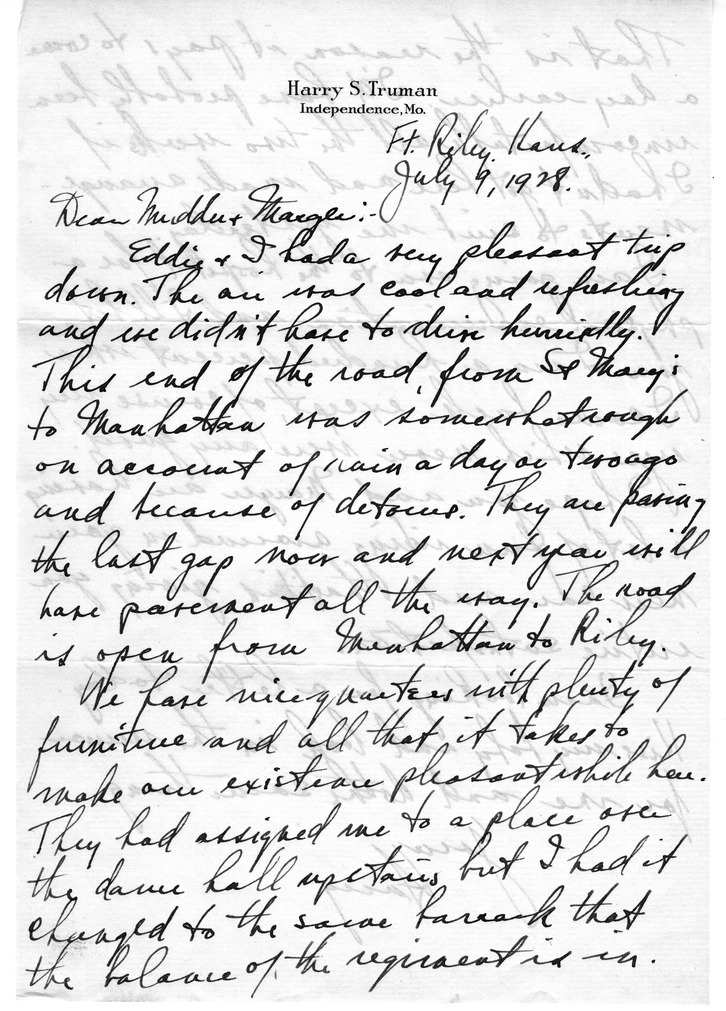 Harry S. Truman
Independence, Mo.
Ft. Riley, Kans.,
July 9, 1928.
Dear Mudder & Margie:-
Eddie & I had a very pleasant trip
down. The air was cool and refreshing
and we didn't have to drive hurriedly.
This end of the road, from St Mary's
to Manhattan was somewhat rough
on account of rain a day or two ago
and because of detours. They are paving
the last gap now and next year will
have pavement all the way. The road
is open from Manhattan to Riley.
We have nice quarters with plenty of
furniture and all that it takes to
make our existence pleasant while here.
They had assigned me to a place over
the dance hall upstairs but I had it
changed to the same barrack that
the balance of the regiment is in.